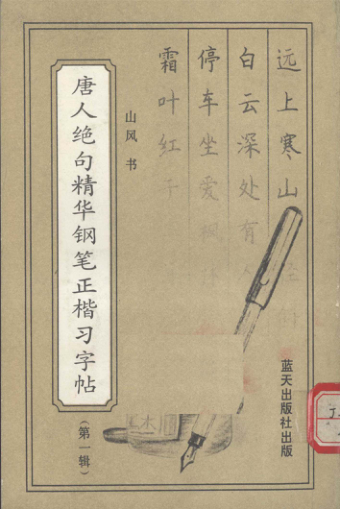 远上寒山
白云深处有
停车坐爱枫
霜叶红于
山风 书
唐人绝句精华钢笔正楷习字帖
（第一辑）
蓝天出版社出版